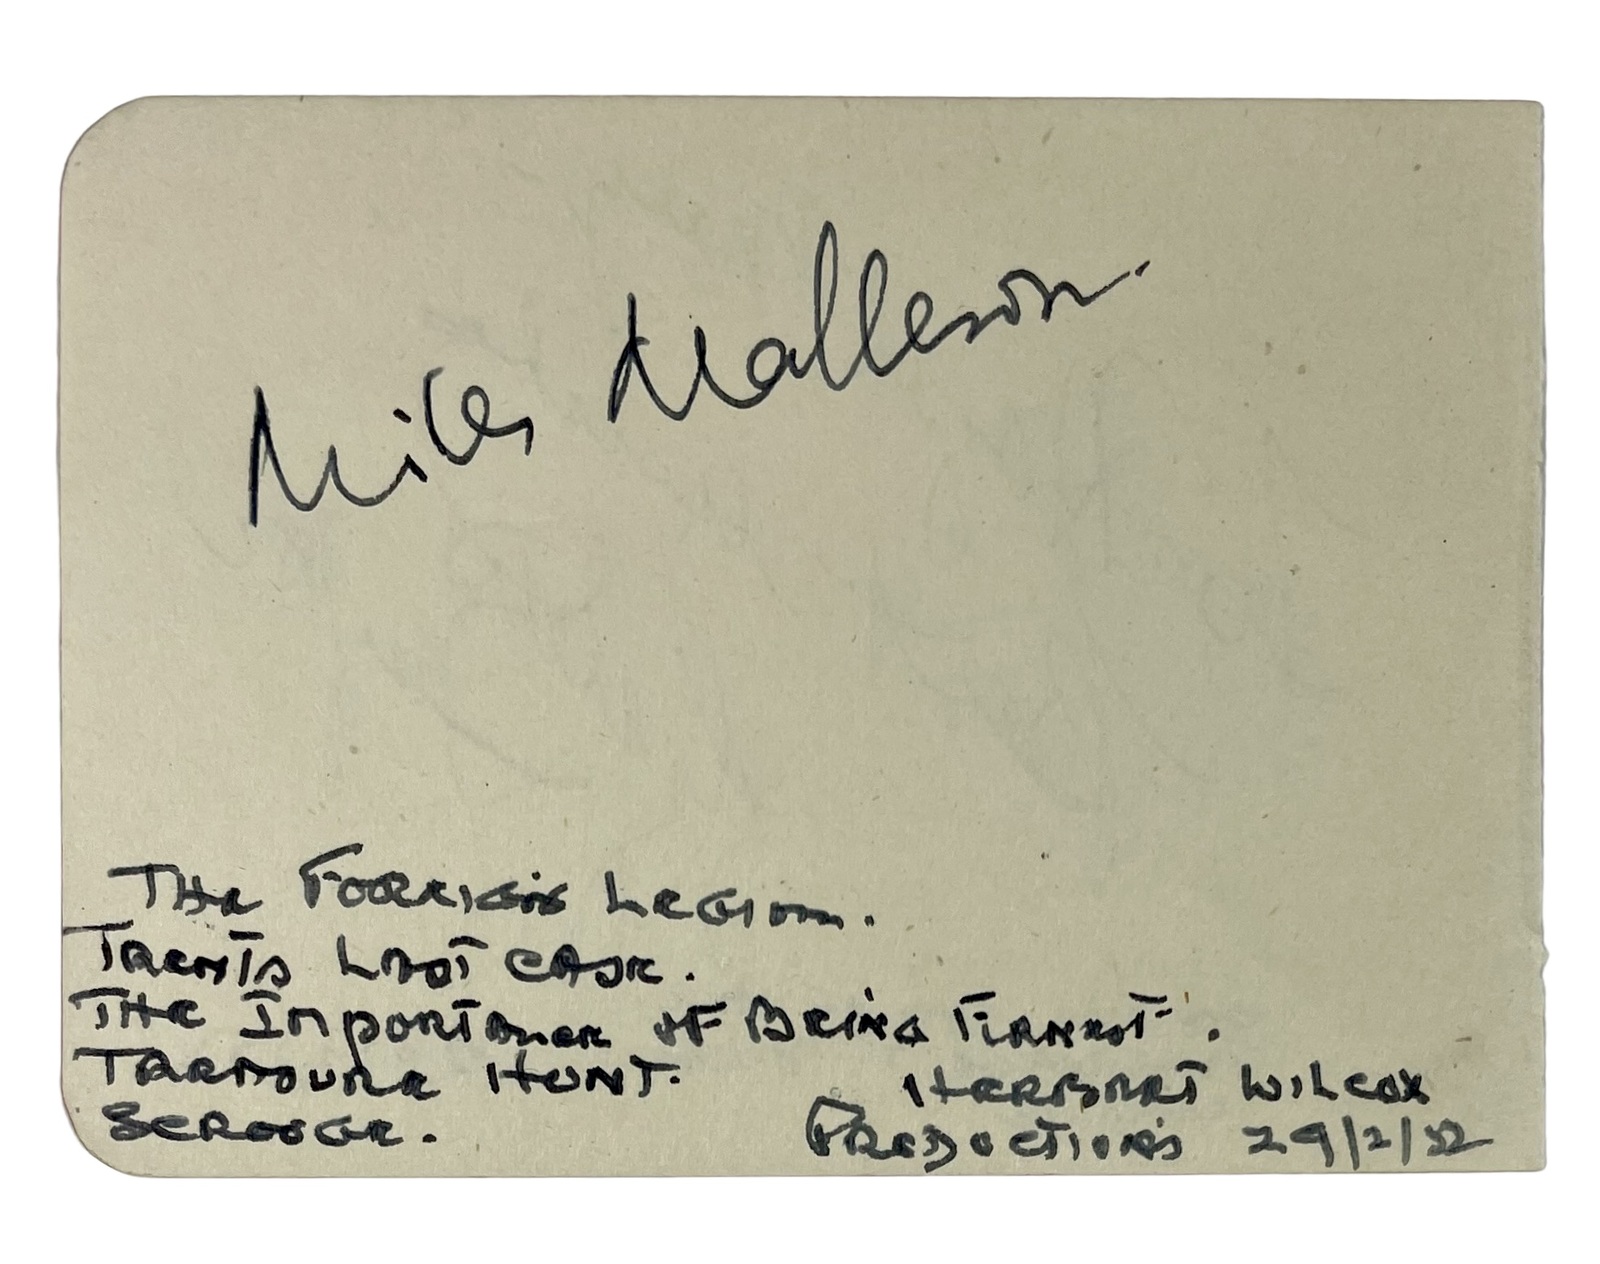 Miles Malleson.
THE FOOREIGN LEGION.
TRENTS LAST CASE.
THE IMPORTANCE OF BEING ERNEST.
TREASURE HUNT.
SCROOGE.
HERBERT WILCOX
PRODUCTIONS 29/2/52